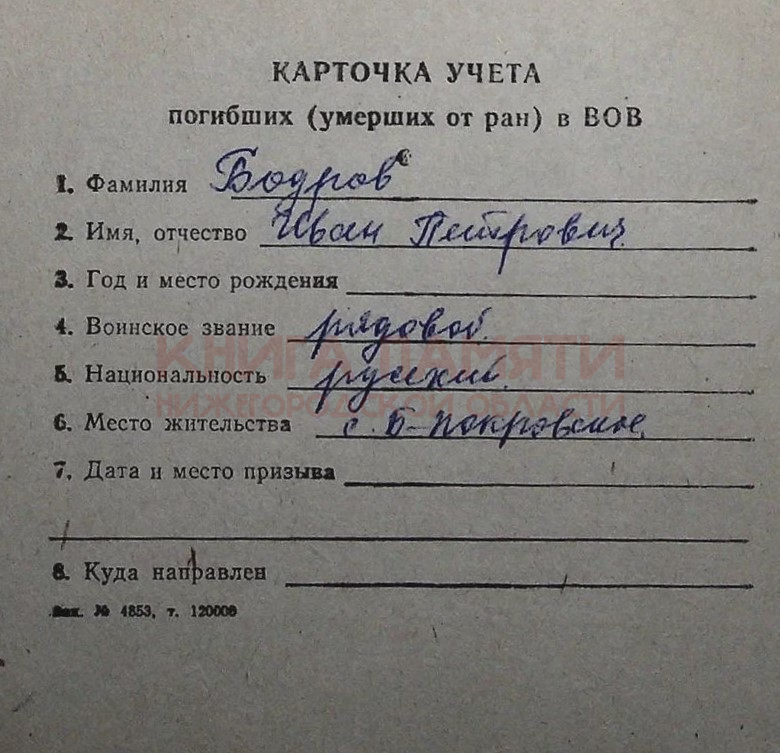 КАРТОЧКА УЧЕТА
погибших (умерших от ран) в ВОВ
1. Фамилия Бодров
2. Имя, отчество Иван Петрович
3. Год и место рождения
4. Воинское звание рядовой.
КНИГА ПАМЯТИ
5. Национальность русский.
НИЖЕГОРОДСКОЙ ОБЛАСТИ
6. Место жительства с. Б-Покровское.
7. Дата и место призыва
8. Куда направлен
Зак. № 4853, т. 120000